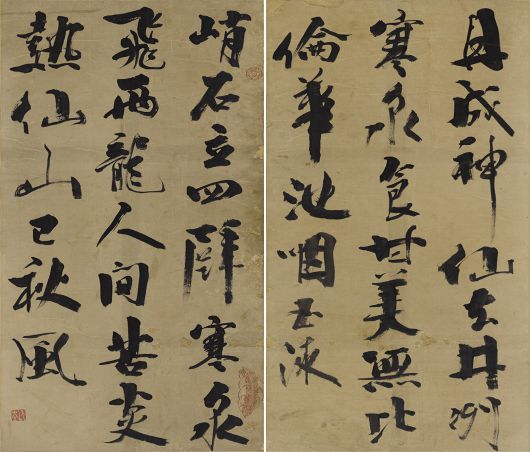 丹成神仙去井洌
寒泉食甘美無比
倫華池咽玉液
峭石立四壁寒泉
飛兩龍人間苦炎
熱仙山已秋風